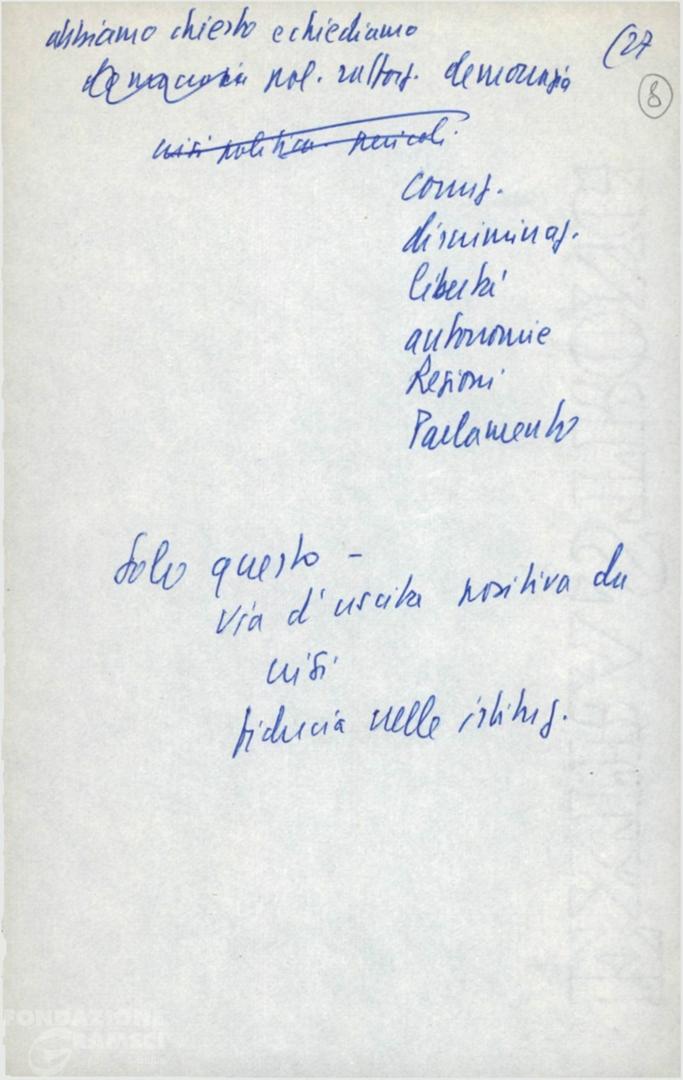 abbiamo chiesto e chiediamo (27
8
democrazia pol. rafforz. democrazia
crisi politica - pericoli
corruz.
discriminaz.
libertà
autonomie
Regioni
Parlamento
Solo questo -
via d'uscita positiva da
crisi
fiducia nelle istituz.
FONDAZIONE
GRAMSCI